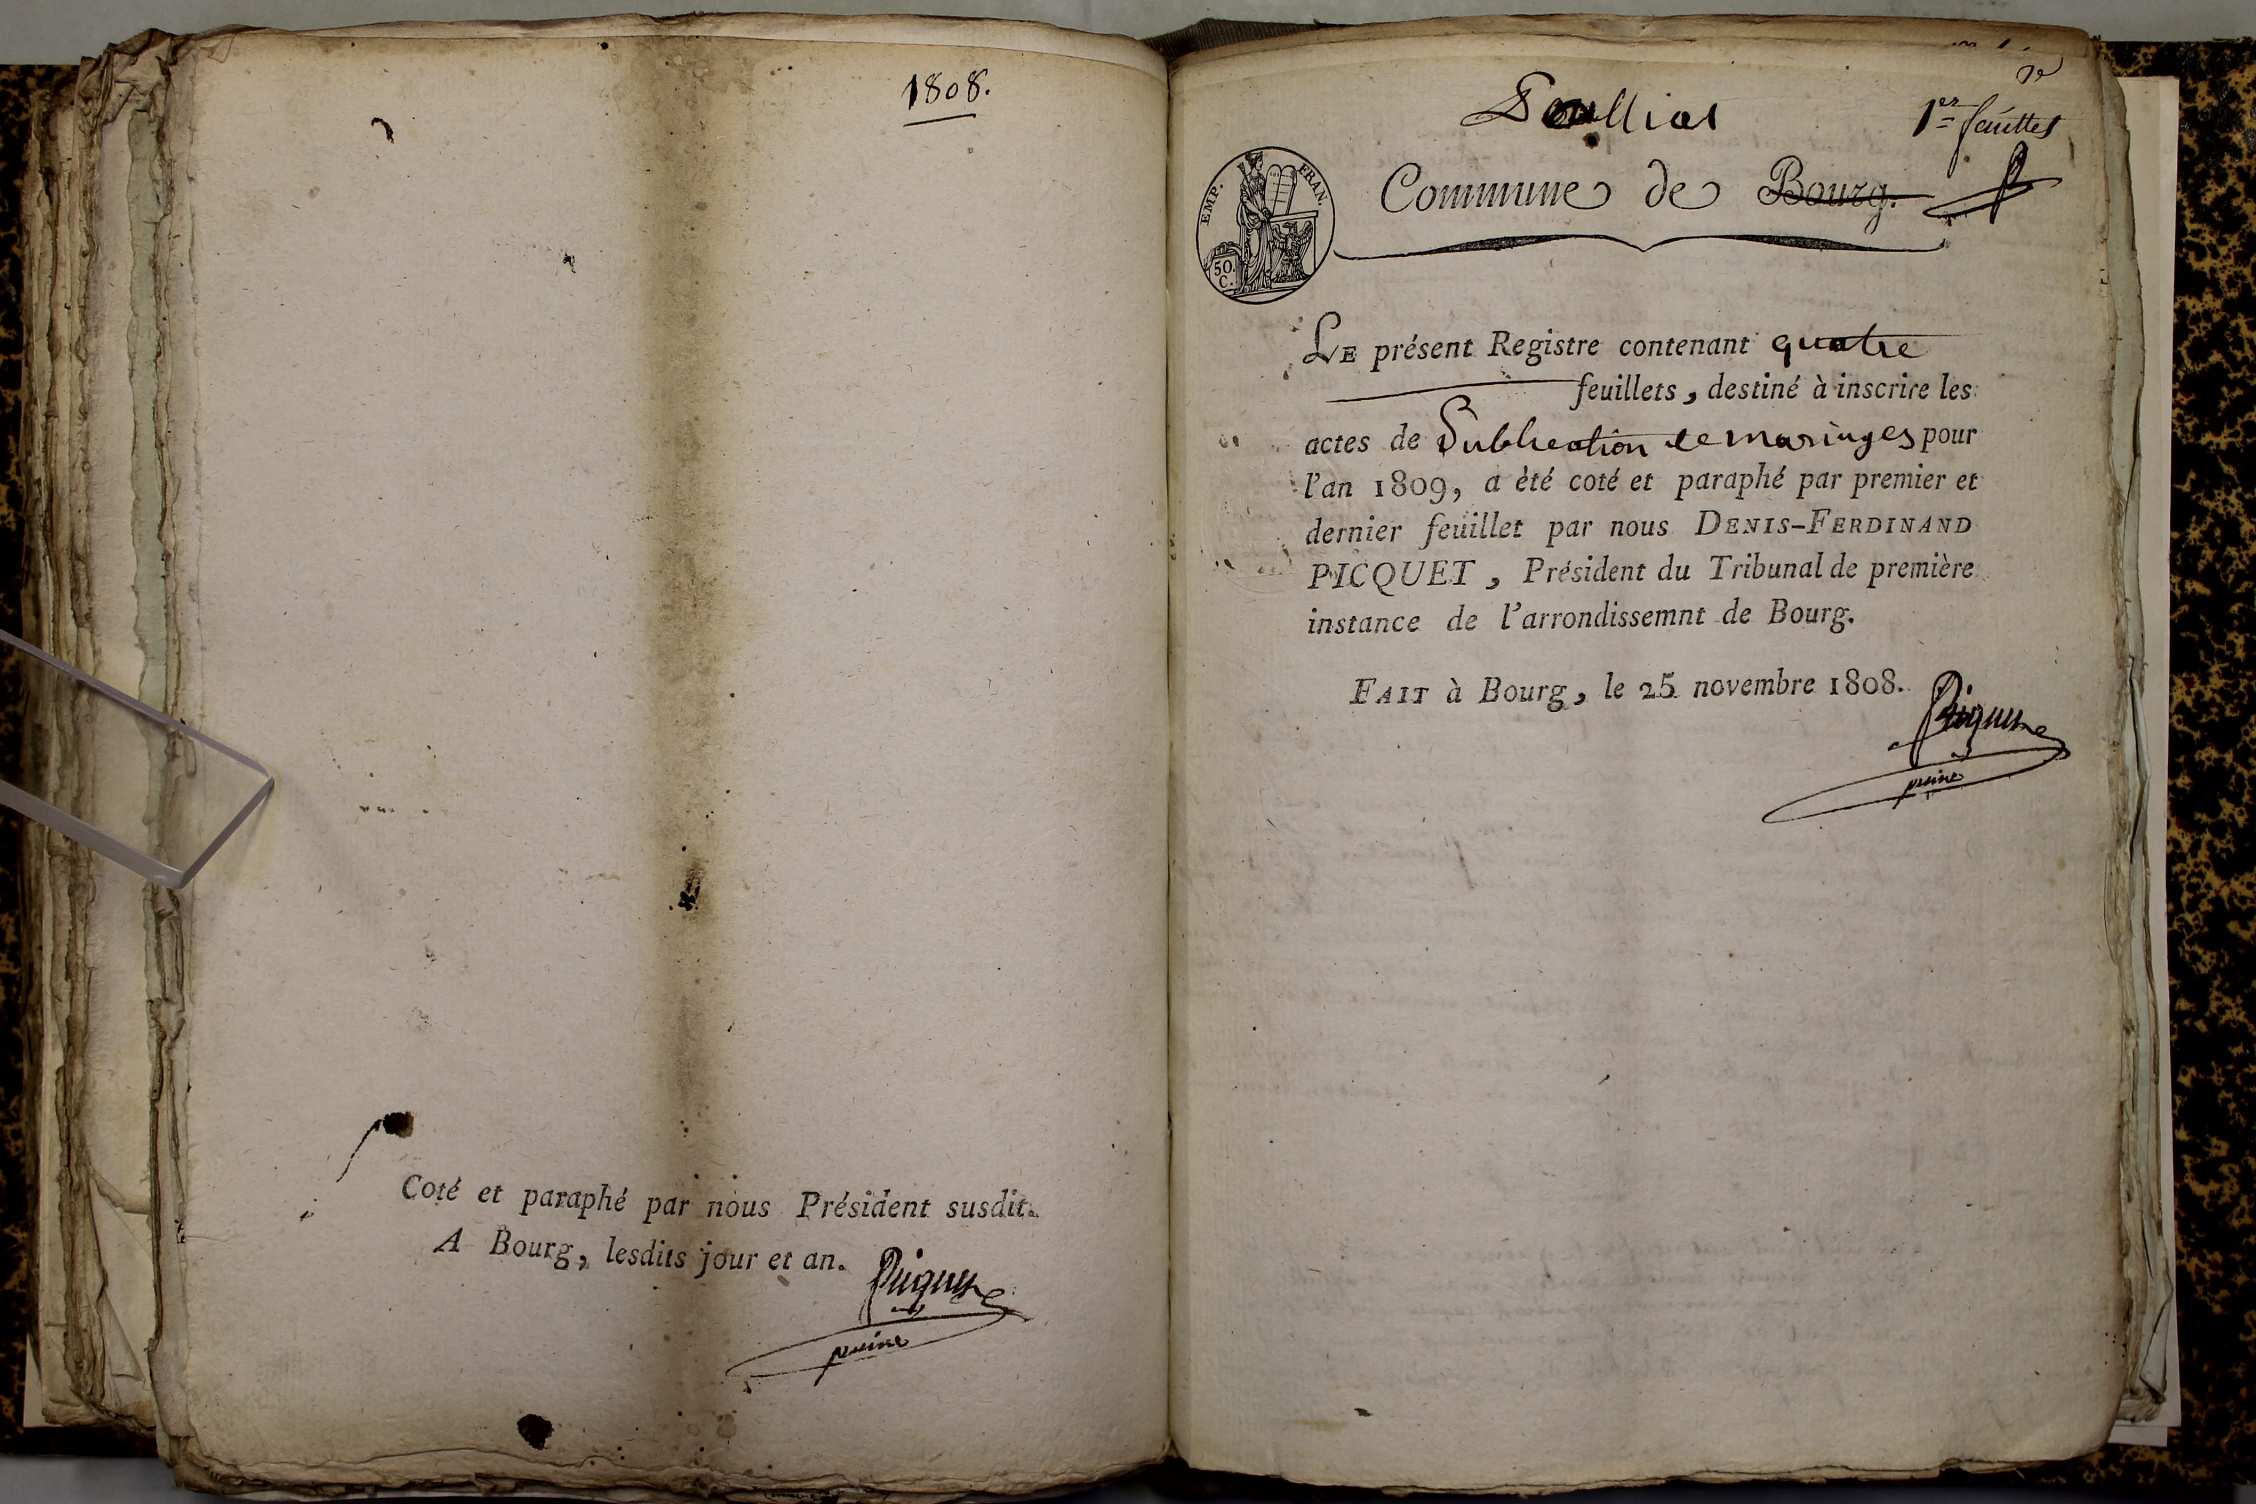 1808.
Coté et paraphé par nous Président susdit.
A Bourg, lesdits jour et an.
Picquet
puiné
1er feuillet
EMP. FRAN.
50.
C.
Commune de Bourg.
LE présent Registre contenant quatre
feuillets, destiné à inscrire les
actes de Publication de mariages pour
l'an 1809, a èté coté et paraphé par premier et
dernier feuillet par nous DENIS-FERDINAND
PICQUET, Président du Tribunal de première
instance de l'arrondissemnt de Bourg.
FAIT à Bourg, le 25 novembre 1808.
Picquet
puiné